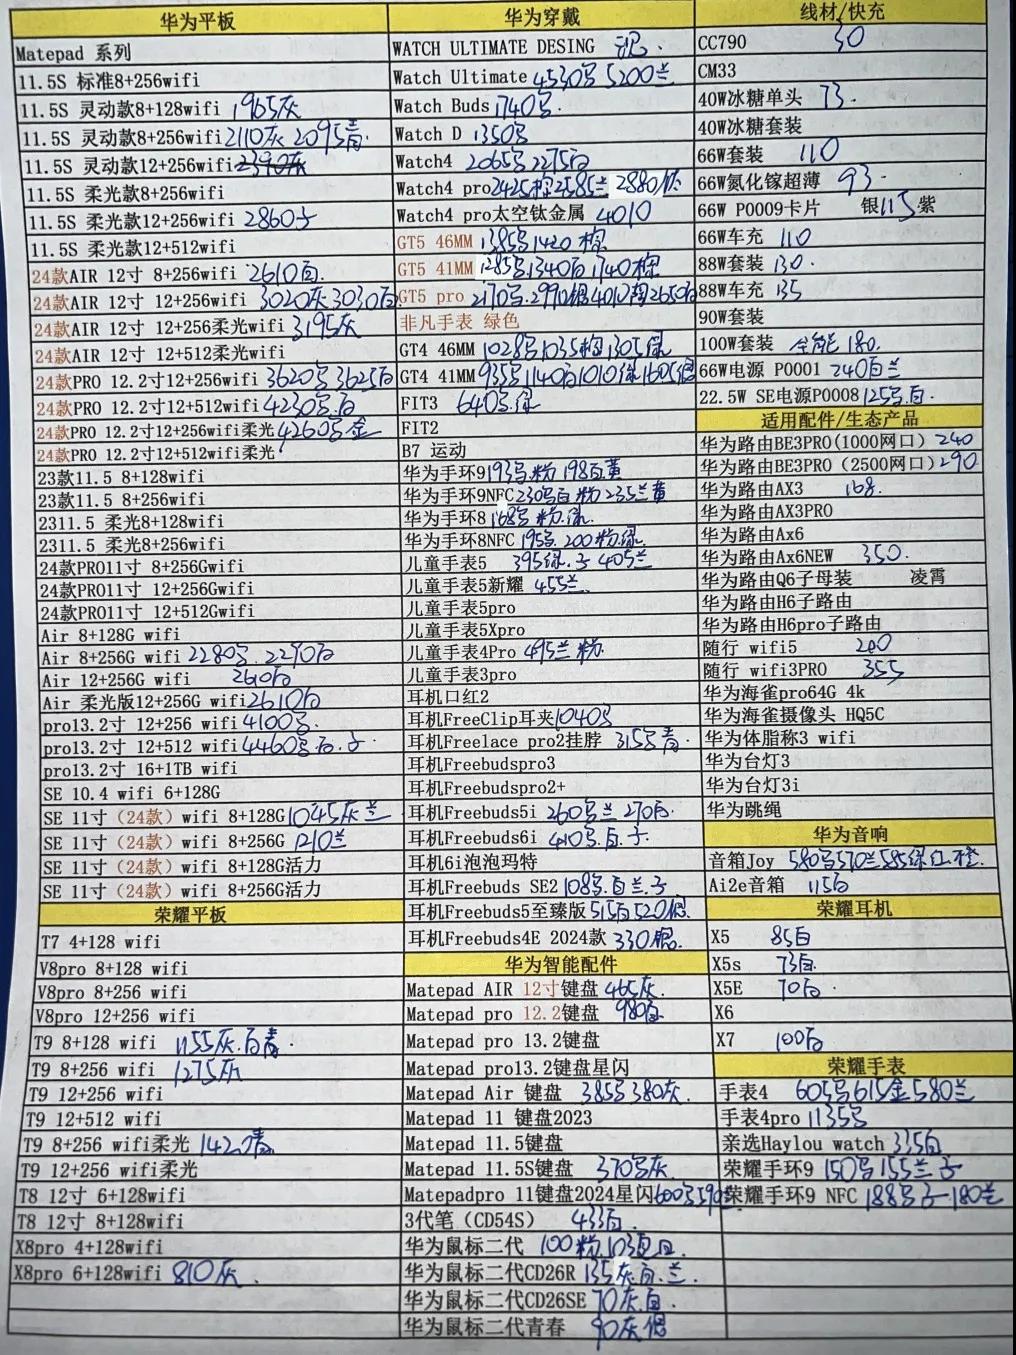 华为平板
Matepad 系列
11.5S 标准8+256wifi
11.5S 灵动款8+128wifi 1965灰
11.5S 灵动款8+256wifi 2110灰 2095青
11.5S 灵动款12+256wifi 2390灰
11.5S 柔光款8+256wifi
11.5S 柔光款12+256wifi 2860子
11.5S 柔光款12+512wifi
24款AIR 12寸 8+256wifi 2610白
24款AIR 12寸 12+256wifi 3020灰 3030白
24款AIR 12寸 12+256柔光wifi 3195灰
24款AIR 12寸 12+512柔光wifi
24款PRO 12.2寸12+256wifi 3620号 3625白
24款PRO 12.2寸12+512wifi 4230号.白
24款PRO 12.2寸12+256wifi柔光 4260号金
24款PRO 12.2寸12+512wifi柔光
23款11.5 8+128wifi
23款11.5 8+256wifi
2311.5 柔光8+128wifi
2311.5 柔光8+256wifi
24款PRO11寸 8+256Gwifi
24款PRO11寸 12+256Gwifi
24款PRO11寸 12+512Gwifi
Air 8+128G wifi
Air 8+256G wifi 2280号. 2290白
Air 12+256G wifi 2610白
Air 柔光版12+256G wifi 2610白
pro13.2寸 12+256 wifi 4100号.
pro13.2寸 12+512 wifi 4460号.白.子
pro13.2寸 16+1TB wifi
SE 10.4 wifi 6+128G
SE 11寸（24款）wifi 8+128G 1045灰兰
SE 11寸（24款）wifi 8+256G 1210兰
SE 11寸（24款）wifi 8+128G活力
SE 11寸（24款）wifi 8+256G活力
荣耀平板
T7 4+128 wifi
V8pro 8+128 wifi
V8pro 8+256 wifi
V8pro 12+256 wifi
T9 8+128 wifi 1155灰.白青.
T9 8+256 wifi 1275灰
T9 12+256 wifi
T9 12+512 wifi
T9 8+256 wifi柔光 1420青
T9 12+256 wifi柔光
T8 12寸 6+128wifi
T8 12寸 8+128wifi
X8pro 4+128wifi
X8pro 6+128wifi 810灰.
华为穿戴
WATCH ULTIMATE DESING
Watch Ultimate 4530号 5200兰
Watch Buds 1740号.
Watch D 1350号
Watch4 2065号 2275白
Watch4 pro 2425棕 2585兰 2880
Watch4 pro太空钛金属 4010
GT5 46MM 1385号 1420棕
GT5 41MM 1285号 1340白 1740棕
GT5 pro 2170号. 2990 4010 2650白
非凡手表 绿色
GT4 46MM 1028号 1035棕 1305绿
GT4 41MM 935号 1140白 1010绿 1605银
FIT3 640号.绿
FIT2
B7 运动
华为手环9 193号.粉 198白黄
华为手环9NFC 230号白 粉 235兰黄
华为手环8 168号 粉.绿.
华为手环8NFC 195号. 200粉.绿.
儿童手表5 395绿.子 405兰
儿童手表5新耀 455兰.
儿童手表5pro
儿童手表5Xpro
儿童手表4Pro 495兰 粉.
儿童手表3pro
耳机口红2
耳机FreeClip耳夹 1040号
耳机Freelace pro2挂脖 315号青.
耳机Freebudspro3
耳机Freebudspro2+
耳机Freebuds5i 260号兰 270白.
耳机Freebuds6i 410号.白.子.
耳机6i泡泡玛特
耳机Freebuds SE2 108号.白兰.子
耳机Freebuds5至臻版 515白 520银.
耳机Freebuds4E 2024款 330银.
华为智能配件
Matepad AIR 12寸键盘 465灰.
Matepad pro 12.2键盘 980白
Matepad pro 13.2键盘
Matepad pro13.2键盘星闪
Matepad Air 键盘 385号 380灰.
Matepad 11 键盘2023
Matepad 11.5键盘
Matepad 11.5S键盘 370号灰
Matepadpro 11键盘2024星闪 600号 590
3代笔（CD54S） 433白.
华为鼠标二代 100粉. 103
华为鼠标二代CD26R 135灰.白.兰.
华为鼠标二代CD26SE 70灰.白.
华为鼠标二代青春 90灰银
线材/快充
CC790 30
CM33
40W冰糖单头 73.
40W冰糖套装
66W套装 110
66W氮化镓超薄 93.
66W P0009卡片 银115紫
66W车充 110
88W套装 130.
88W车充 135
90W套装
100W套装 全能 180.
66W电源 P0001 240白兰
22.5W SE电源P0008 125号.白.
适用配件/生态产品
华为路由BE3PRO(1000网口) 240
华为路由BE3PRO（2500网口) 290
华为路由AX3 168.
华为路由AX3PRO
华为路由Ax6
华为路由Ax6NEW 350.
华为路由Q6子母装 凌霄
华为路由H6子路由
华为路由H6pro子路由
随行 wifi5 200
随行 wifi3PRO 355
华为海雀pro64G 4k
华为海雀摄像头 HQ5C
华为体脂称3 wifi
华为台灯3
华为台灯3i
华为跳绳
华为音响
音箱Joy 580号 570兰 585绿 红.橙.
Ai2e音箱 115白
荣耀耳机
X5 85白
X5s 73白.
X5E 70白
X6
X7 100白
荣耀手表
手表4 605号 615金 580兰
手表4pro 1135号
亲选Haylou watch 335白
荣耀手环9 150号 155兰 子
荣耀手环9 NFC 188号子 180兰